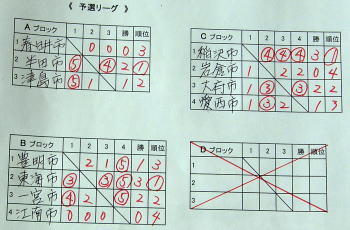 《 予選リーグ 》
A ブロック 1 2 3 勝 順位
1 春日井市 0 0 0 3
2 半田市 ⑤ ④ 2 ①
3 津島市 ⑤ 1 1 2
C ブロック 1 2 3 4 勝 順位
1 稲沢市 ④ ④ ④ 3 ①
2 岩倉市 1 2 2 0 4
3 大府市 1 ③ ③ 2 2
4 愛西市 1 ③ 2 1 3
B ブロック 1 2 3 4 勝 順位
1 豊明市 2 1 ⑤ 1 3
2 東海市 ③ ③ ⑤ 3 ①
3 一宮市 ④ 2 ⑤ 2 2
4 江南市 0 0 0 0 4
D ブロック 1 2 3 勝 順位
1
2
3